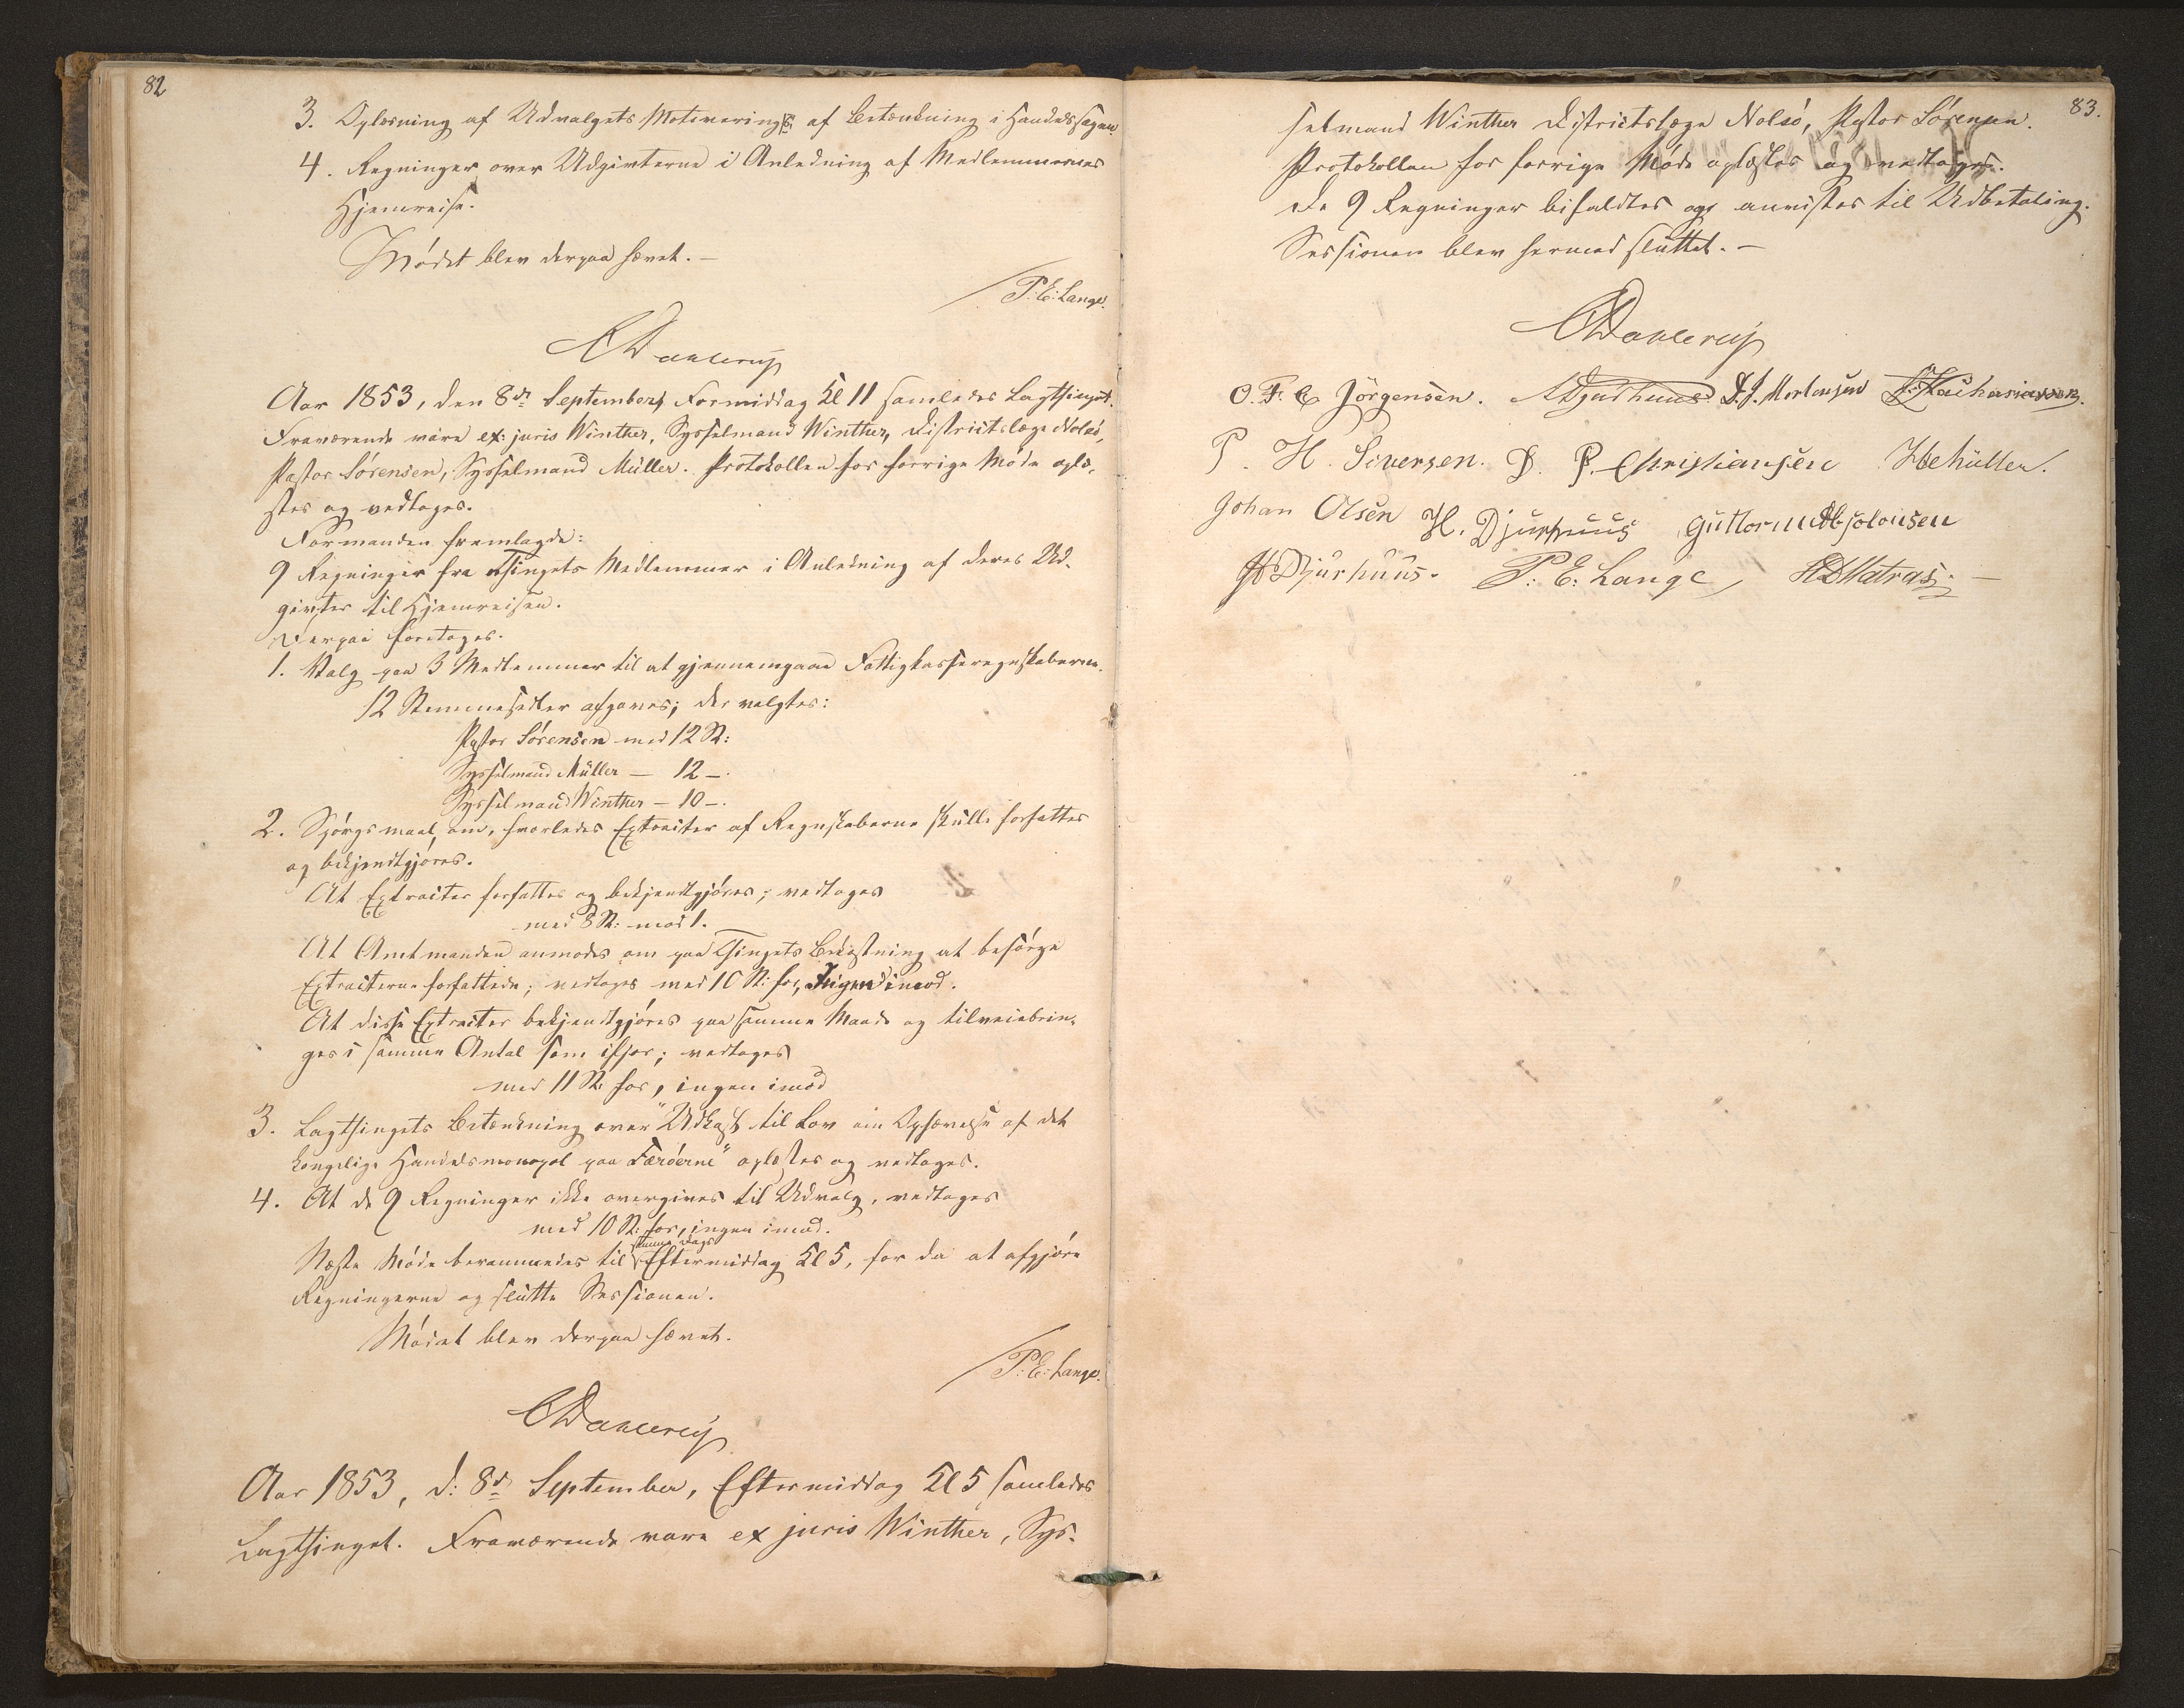 82
3. Oplæsning af Udvalgets Motivering af Betænkning i Handelssagen.
4. Regninger over Udgivterne i Anledning af Medlemmernes
Hjemreise.
Mødet blev derpaa hævet. —
P: E: Lange.
CDahlerup
Aar 1853, den 8de September, Formiddag Kl 11 samledes Lagthinget.
Fraværende vare ex: juris Winther, Sysselmand Winther, Districtslæge Nolsö,
Pastor Sörensen, Sysselmand Müller. Protokollen for forrige Möde oplæ-
stes og vedtoges.
Formanden fremlagde:
9 Regninger fra Thingets Medlemmer i Anledning af deres Ud-
givter til Hjemreisen.
Derpaa foretoges.
1. Valg paa 3 Medlemmer til at gjennemgaae Fattigkasseregnskaberne.
12 Stemmesedler afgaves; der valgtes:
Pastor Sörensen med 12 St:
Sysselmand Müller — 12 —.
Sysselmand Winther — 10 —.
2. Spörgsmaal om, hvorledes Extracter af Regnskaberne skulle forfattes
og bekjendtgjöres.
At Extracter forfattes og bekjendtgjöres; vedtoges
med 8 St: mod 1.
At Amtmanden anmodes om paa Thingets Bekostning at besörge
Extracterne forfattede; vedtoges med 10 St: for, Ingen imod.
At disse Extracter bekjendtgjöres paa samme Maade og tilveiebrin-
ges i samme Antal som ifjor; vedtoges
med 11 St: for, ingen imod
3. Lagthingets Betænkning over "Udkast til Lov om Ophævelse af det
kongelige Handelsmonopol paa Færöerne" oplæstes og vedtoges.
4. At de 9 Regninger ikke overgives til Udvalg, vedtoges
med 10 St: for, ingen imod.
samme Dags
Næste Möde berammedes til Eftermiddag Kl 5, for da at afgjöre
Regningerne og slutte Sessionen.
Mödet blev derpaa hævet.
P: E: Lange.
CDahlerup
Aar 1853, d: 8de September, Eftermiddag Kl 5 samledes
Lagthinget. Fraværende vare ex juris Winther, Sys-
83.
selmand Winther Districtslæge Nolsö, Pastor Sörensen.
Protokollen for forrige Möde oplæstes og vedtoges.
De 9 Regninger bifaldtes og anvistes til Udbetaling.
Sessionen blev hermed sluttet. —
CDahlerup
O. F. C Jörgensen. Djurhuus D. J. Mortensen Zachariasen.
P. H. Siversen. D. P. Christiansen HMüller.
Johan Olsen H. Djurhuus Guttorm Absolonsen
Djurhuus. P: E: Lange, HDMatras. —